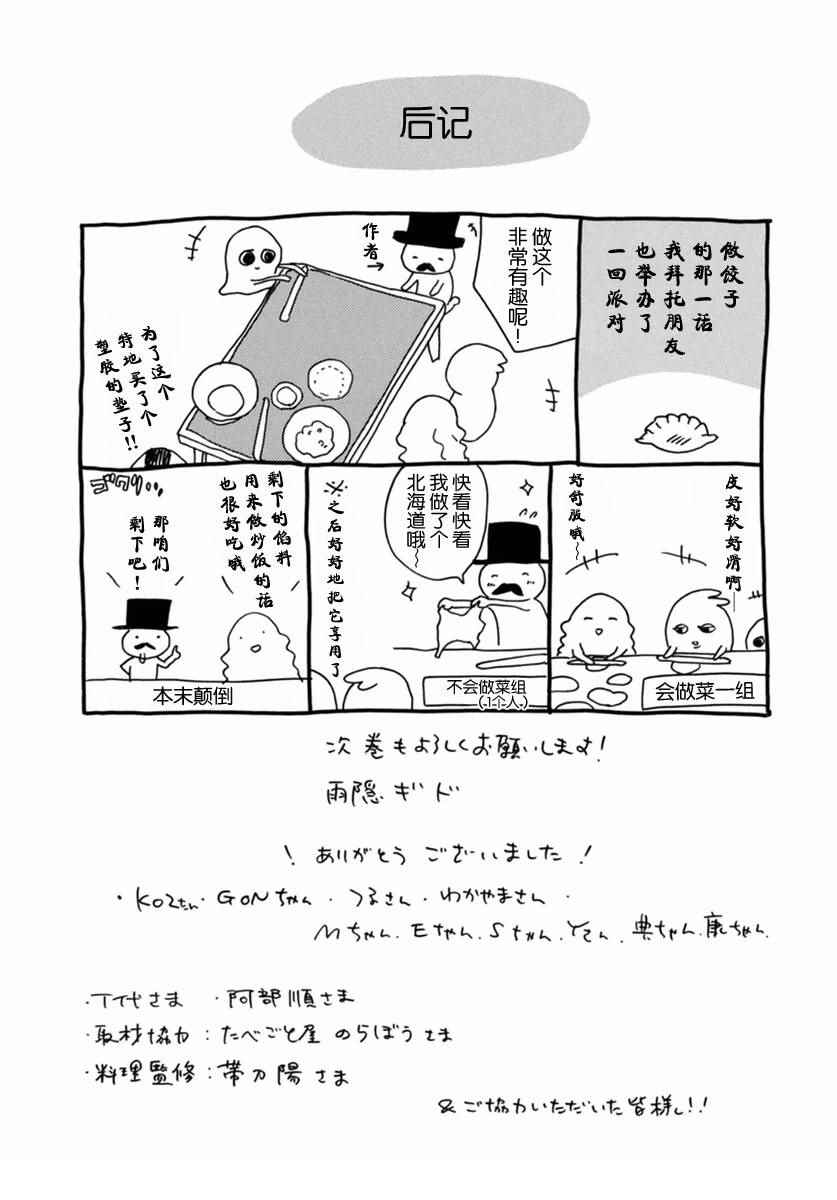 后记
做饺子
的那一话
我拜托朋友
也举办了
一回派对
做这个
非常有趣呢！
作者→
为了这个
特地买了个
塑胶的垫子!!
皮好软好滑啊——
好舒服哦～
会做菜一组
快看快看
我做了个
北海道哦～
※之后好好地把它享用了
不会做菜组
（1个人）
剩下的馅料
用来做炒饭的话
也很好吃哦
那咱们
剩下吧！
ゴクリ…
本末颠倒
次巻もよろしくお願いします!
雨隠ギド
! ありがとうございました!
・KOZたん・GONちゃん・つるさん・わかやまさん・
Mちゃん.Eちゃん.Sちゃん.Yさん.典ちゃん.康ちゃん.
・T代さま ・阿部順さま
・取材協力:たべごと屋のらぼうさま
・料理監修:帯刀陽さま
&ご協力いただいた皆様し!!